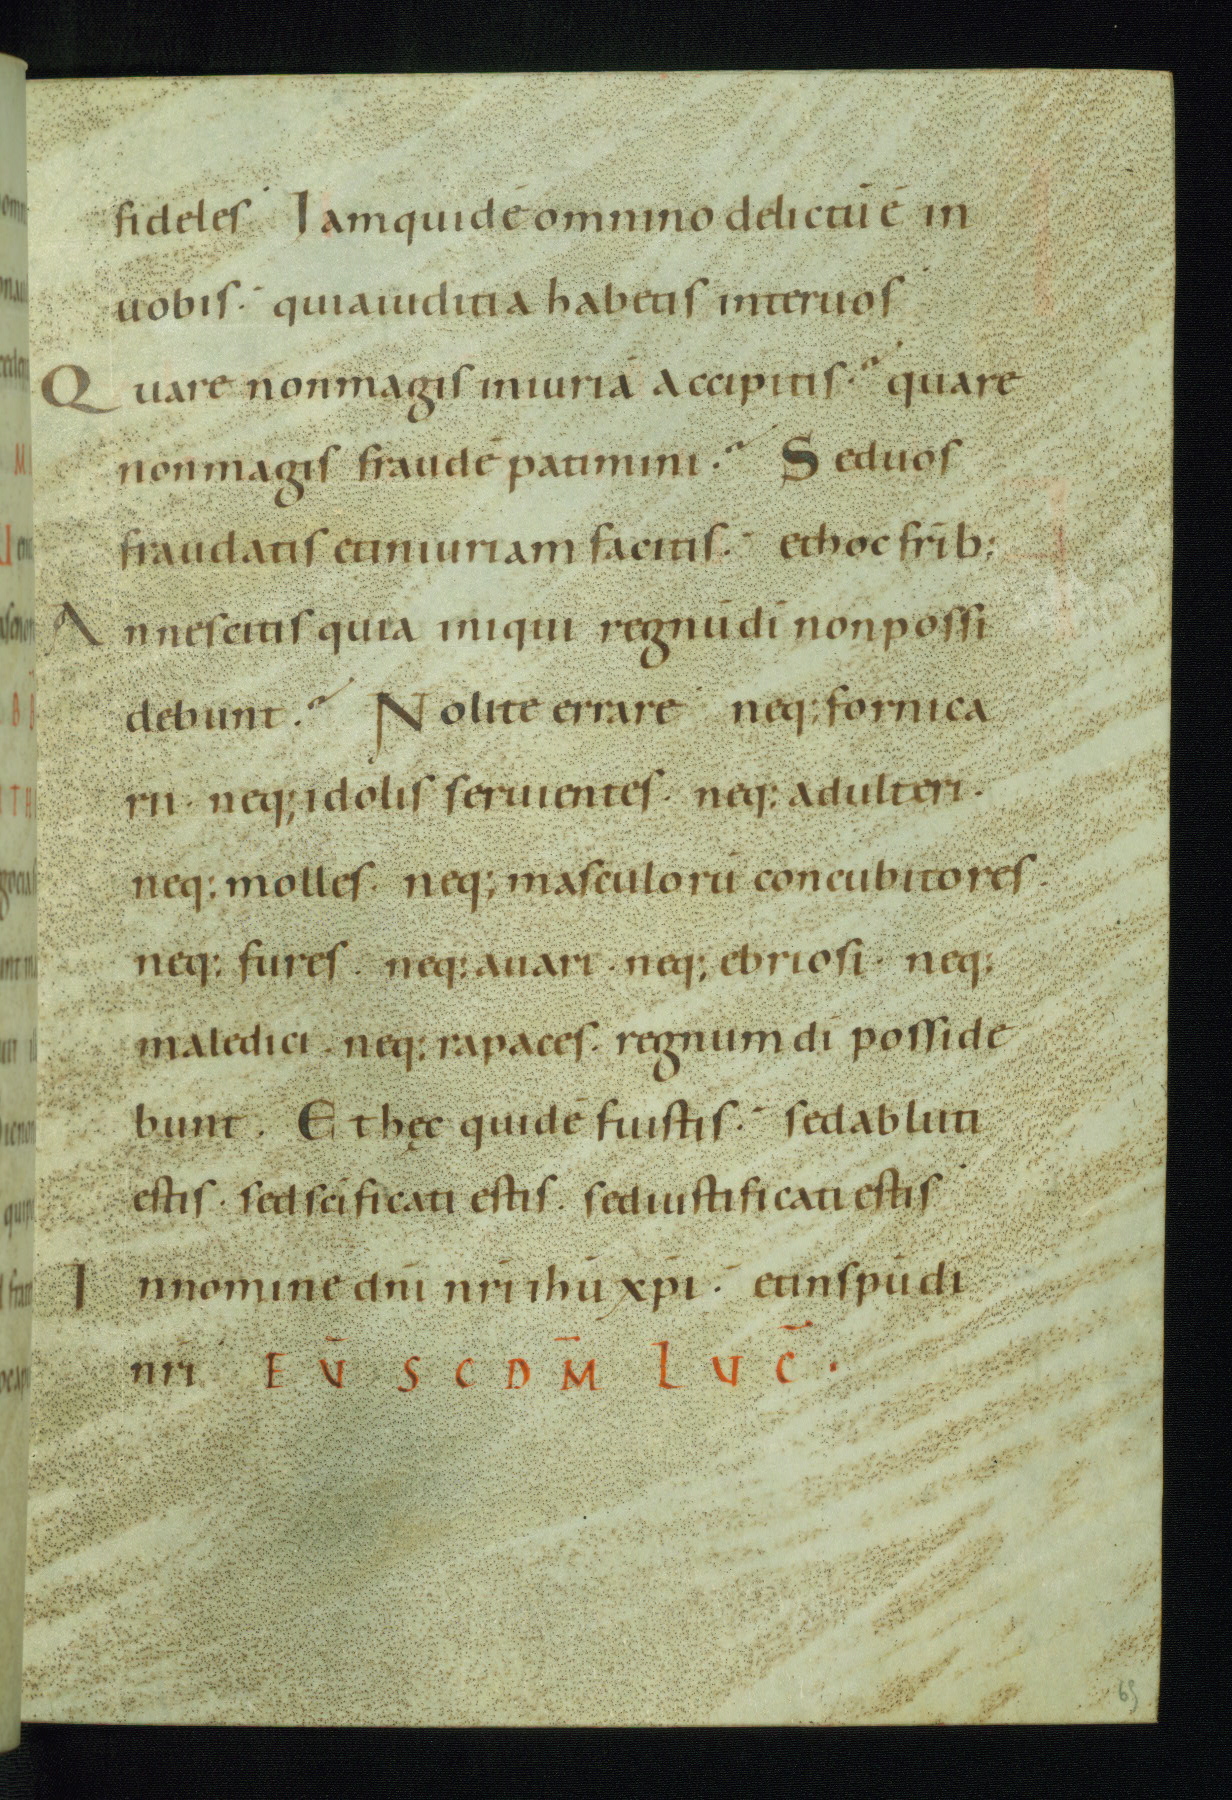 fideles Iamquidē omnino delictū ē in
uobis. quiaiuditia habetis interuos
Quare nonmagis iniuriā accipitis. quare
nonmagis fraudē patimini. Seduos
fraudatis etiniuriam facitis. ethoc frīb;
Annescitis quia iniqui regnū dī nonpossi
debunt. Nolite errare neq; fornica
rii. neq; idolis seruientes. neq; adulteri.
neq; molles. neq; masculorū concubitores.
neq; fures. neq; auari. neq; ebriosi. neq;
maledici. neq; rapaces. regnum dī posside
bunt. Et hęc quidē fuistis. sedabluti
estis. sedscīficati estis. sediustificati estis
Innomine dnī nrī ihū xpī. etinspū dī
nrī EṼ SCDM̄ LVC̄.
65